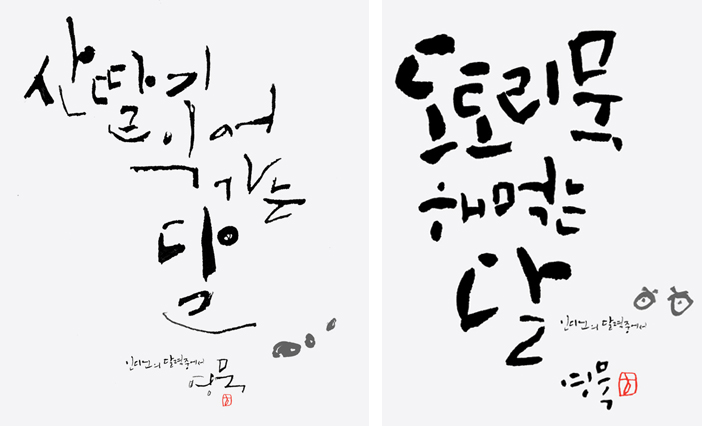 산딸기
익어
가는
달
인디언의 달력중에서
영묵
도토리묵
해먹는
달
인디언의 달력중에서
영묵